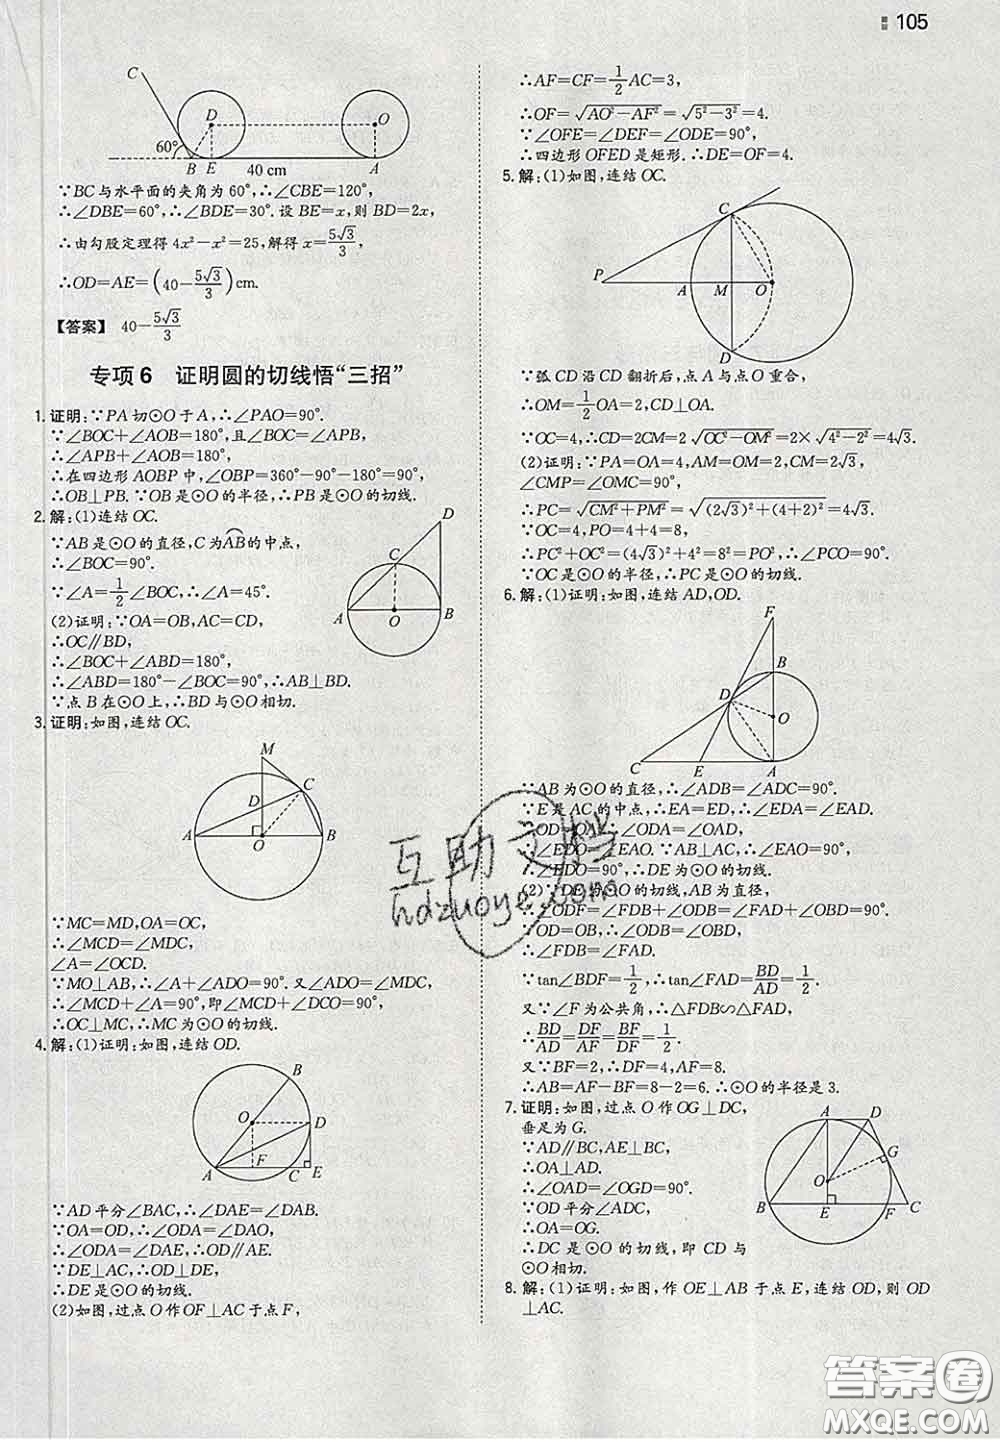 105
C
D
O
60°
B E
40 cm
A
∵BC与水平面的夹角为60°,∴∠CBE=120°,
∴∠DBE=60°,∴∠BDE=30°. 设BE=x,则BD=2x,
∴由勾股定理得4x²-x²=25,解得x=5√3/3,
∴OD=AE=(40-5√3/3)cm.
【答案】 40-5√3/3
专项6 证明圆的切线悟“三招”
1. 证明:∵PA切⊙O于A,∴∠PAO=90°.
∵∠BOC+∠AOB=180°,且∠BOC=∠APB,
∴∠APB+∠AOB=180°.
∴在四边形AOBP中,∠OBP=360°-90°-180°=90°.
∴OB⊥PB. ∵OB是⊙O的半径,∴PB是⊙O的切线.
2. 解:(1)连结OC.
∵AB是⊙O的直径,C为AB⌒的中点,
∴∠BOC=90°.
∵∠A=1/2∠BOC,∴∠A=45°.
(2)证明:∵OA=OB,AC=CD,
∴OC∥BD.
∴∠BOC+∠ABD=180°,
∴∠ABD=180°-∠BOC=90°,∴AB⊥BD.
∵点B在⊙O上,∴BD与⊙O相切.
D
C
A
O
B
3. 证明:如图,连结OC.
M
C
D
A
O
B
∵MC=MD,OA=OC,
∴∠MCD=∠MDC,
∠A=∠OCD.
∵MO⊥AB,∴∠A+∠ADO=90°. 又∠ADO=∠MDC,
∴∠MCD+∠A=90°,即∠MCD+∠DCO=90°.
∴OC⊥MC,∴MC为⊙O的切线.
4. 解:(1)证明:如图,连结OD.
B
O
D
A
F
C E
∵AD平分∠BAC,∴∠DAE=∠DAB.
∵OA=OD,∴∠ODA=∠DAO,
∴∠ODA=∠DAE,∴OD∥AE.
∵DE⊥AC,∴OD⊥DE,
∴DE是⊙O的切线.
(2)如图,过点O作OF⊥AC于点F,
∴AF=CF=1/2AC=3,
∴OF=√(AO²-AF²)=√(5²-3²)=4.
∵∠OFE=∠DEF=∠ODE=90°,
∴四边形OFED是矩形. ∴DE=OF=4.
5. 解:(1)如图,连结OC.
C
P
A M O
D
∵弧CD沿CD翻折后,点A与点O重合,
∴OM=1/2OA=2,CD⊥OA.
∵OC=4,∴CD=2CM=2√(OC²-OM²)=2×√(4²-2²)=4√3.
(2)证明:∵PA=OA=4,AM=OM=2,CM=2√3,
∠CMP=∠OMC=90°,
∴PC=√(CM²+PM²)=√((2√3)²+(4+2)²)=4√3.
∵OC=4,PO=4+4=8,
∴PC²+OC²=(4√3)²+4²=8²=PO²,∴∠PCO=90°.
∵OC是⊙O的半径,∴PC是⊙O的切线.
6. 解:(1)证明:如图,连结AD,OD.
F
B
D
O
C
E
A
∵AB为⊙O的直径,∴∠ADB=∠ADC=90°.
∵E是AC的中点,∴EA=ED,∴∠EDA=∠EAD.
∵OD=OA,∴∠ODA=∠OAD,
∴∠EDO=∠EAO. ∵AB⊥AC,∴∠EAO=90°.
∴∠EDO=90°,∴DE为⊙O的切线.
(2)∵DE是⊙O的切线,AB为直径,
∴∠ODF=∠FDB+∠ODB=∠FAD+∠OBD=90°.
∵OD=OB,∴∠ODB=∠OBD,
∴∠FDB=∠FAD.
∵tan∠BDF=1/2,∴tan∠FAD=BD/AD=1/2.
又∵∠F为公共角,∴△FDB∽△FAD,
∴BD/AD=DF/AF=BF/DF=1/2.
又∵BF=2,∴DF=4,AF=8.
∴AB=AF-BF=8-2=6. ∴⊙O的半径是3.
7. 证明:如图,过点O作OG⊥DC,
垂足为G.
∵AD∥BC,AE⊥BC,
∴OA⊥AD.
∴∠OAD=∠OGD=90°.
∵OD平分∠ADC,
∴OA=OG.
∴DC是⊙O的切线,即CD与
⊙O相切.
A D
G
O
B
E
F C
8. 解:(1)证明:如图,作OE⊥AB于点E,连结OD,则OD
⊥AC.
互助文档
hdzuoye.com
答案圈
MXQE.COM